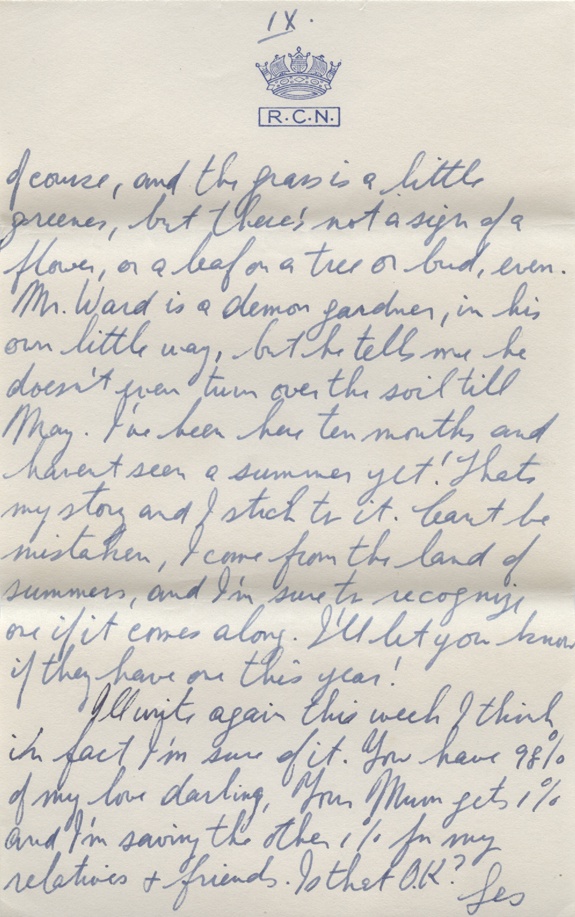 IX.
R.C.N.
of course, and the grass is a little
greener, but there's not a sign of a
flower, or a leaf on a tree or bud, even.
Mr. Ward is a demon gardner, in his
own little way, but he tells me he
doesn't even turn over the soil till
May. I've been here ten months and
havent seen a summer yet! Thats
my story and I stick to it. Can't be
mistaken, I come from the land of
summers, and I'm sure to recognize
one if it comes along. I'll let you know
if they have one this year!
I'll write again this week I think
in fact I'm sure of it. You have 98%
of my love darling, Your Mum gets 1%
and I'm saving the other 1% for my
relatives & friends. Is that O.K?
Les